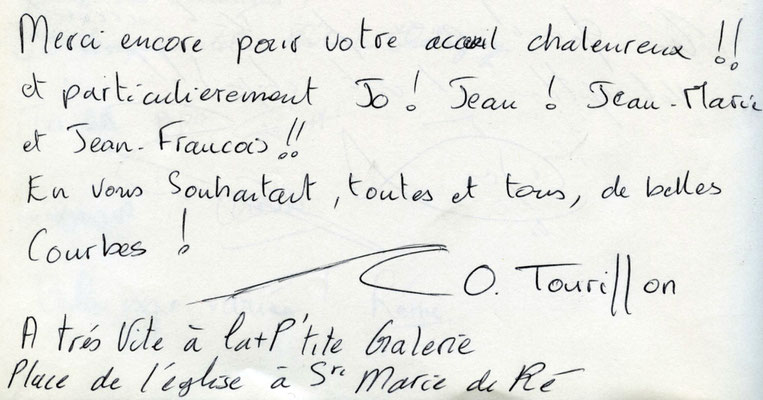 Merci encore pour votre accueil chaleureux !!
et particulierement Jo ! Jeau ! Jean-Marie
et Jean-Francois !!
En vous souhaitant, toutes et tous, de belles
Courbes !
O. Tourillon
A trés Vite à la + P'tite Galerie
Place de l'église à Ste Marie de Ré